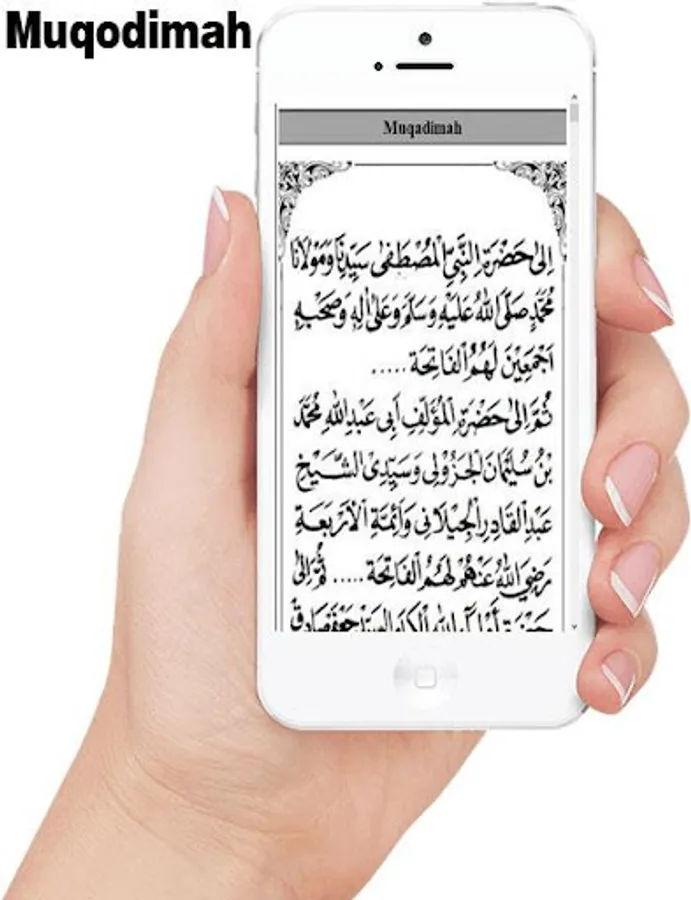 Muqodimah
Muqadimah
اِلىٰ حَضْرَةِ النَّبِيِّ الْمُصْطَفىٰ سَيِّدِنَا وَمَوْلَانَا
مُحَمَّدٍ صَلَّى اللهُ عَلَيْهِ وَسَلَّمَ وَعَلىٰ اٰلِهٖ وَصَحْبِهٖ
اَجْمَعِيْنَ لَهُمُ الْفَاتِحَة .....
ثُمَّ اِلىٰ حَضْرَةِ الْمُؤَلِّفِ اَبِى عَبْدِ اللهِ مُحَمَّد
بِنْ سُلَيْمَان الْجَزُوْلِى وَسَيِّدِى الشَّيْخِ
عَبْدِ الْقَادِرِ الْجِيْلَانِى وَاَئِمَّةِ الْاَرْبَعَةِ
رَضِيَ اللهُ عَنْهُمْ لَهُمُ الْفَاتِحَة ..... ثُمَّ اِلىٰ